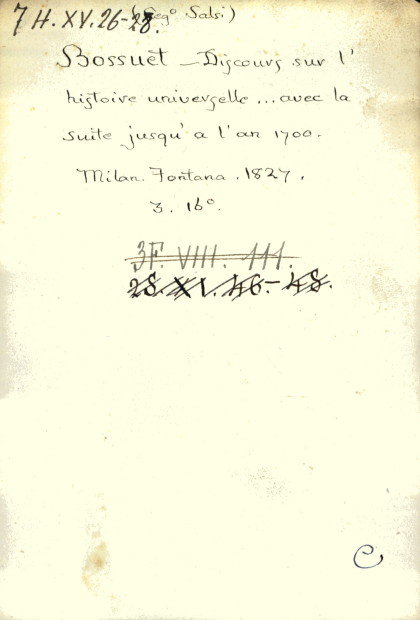 7 H. XV. 26-28. (Leg° Salsi)
Bossuet — Discours sur l'
histoire universelle ... avec la
suite jusqu'a l'an 1700.
Milan. Fontana. 1827.
3. 16°.
3F. VIII. 111.
28. XV. 46-48.
C